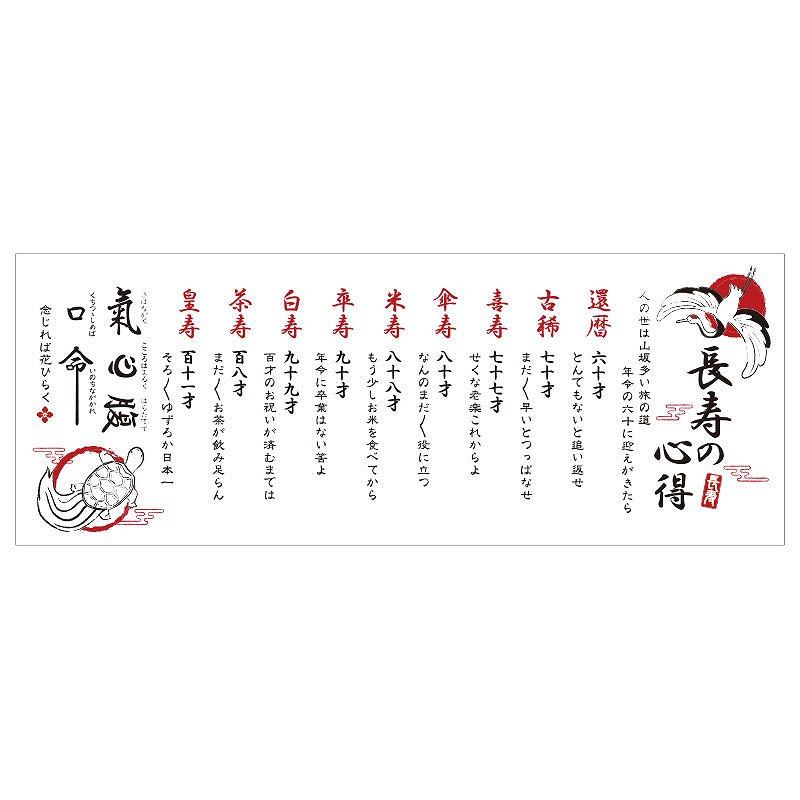 長寿の
心得
長寿
人の世は山坂多い旅の道
年令の六十に迎えがきたら
還暦 六十才
とんでもないと追い返せ
古稀 七十才
まだ〳〵早いとつっぱなせ
喜寿 七十七才
せくな老楽これからよ
傘寿 八十才
なんのまだ〳〵役に立つ
米寿 八十八才
もう少しお米を食べてから
卒寿 九十才
年令に卒業はない筈よ
白寿 九十九才
百才のお祝いが済むまでは
茶寿 百八才
まだ〳〵お茶が飲み足らん
皇寿 百十一才
そろ〳〵ゆずろか日本一
氣 心 腹
きはながく こころはまるく はらたてず
口 命
くちつつしめば いのちながかれ
念じれば花ひらく